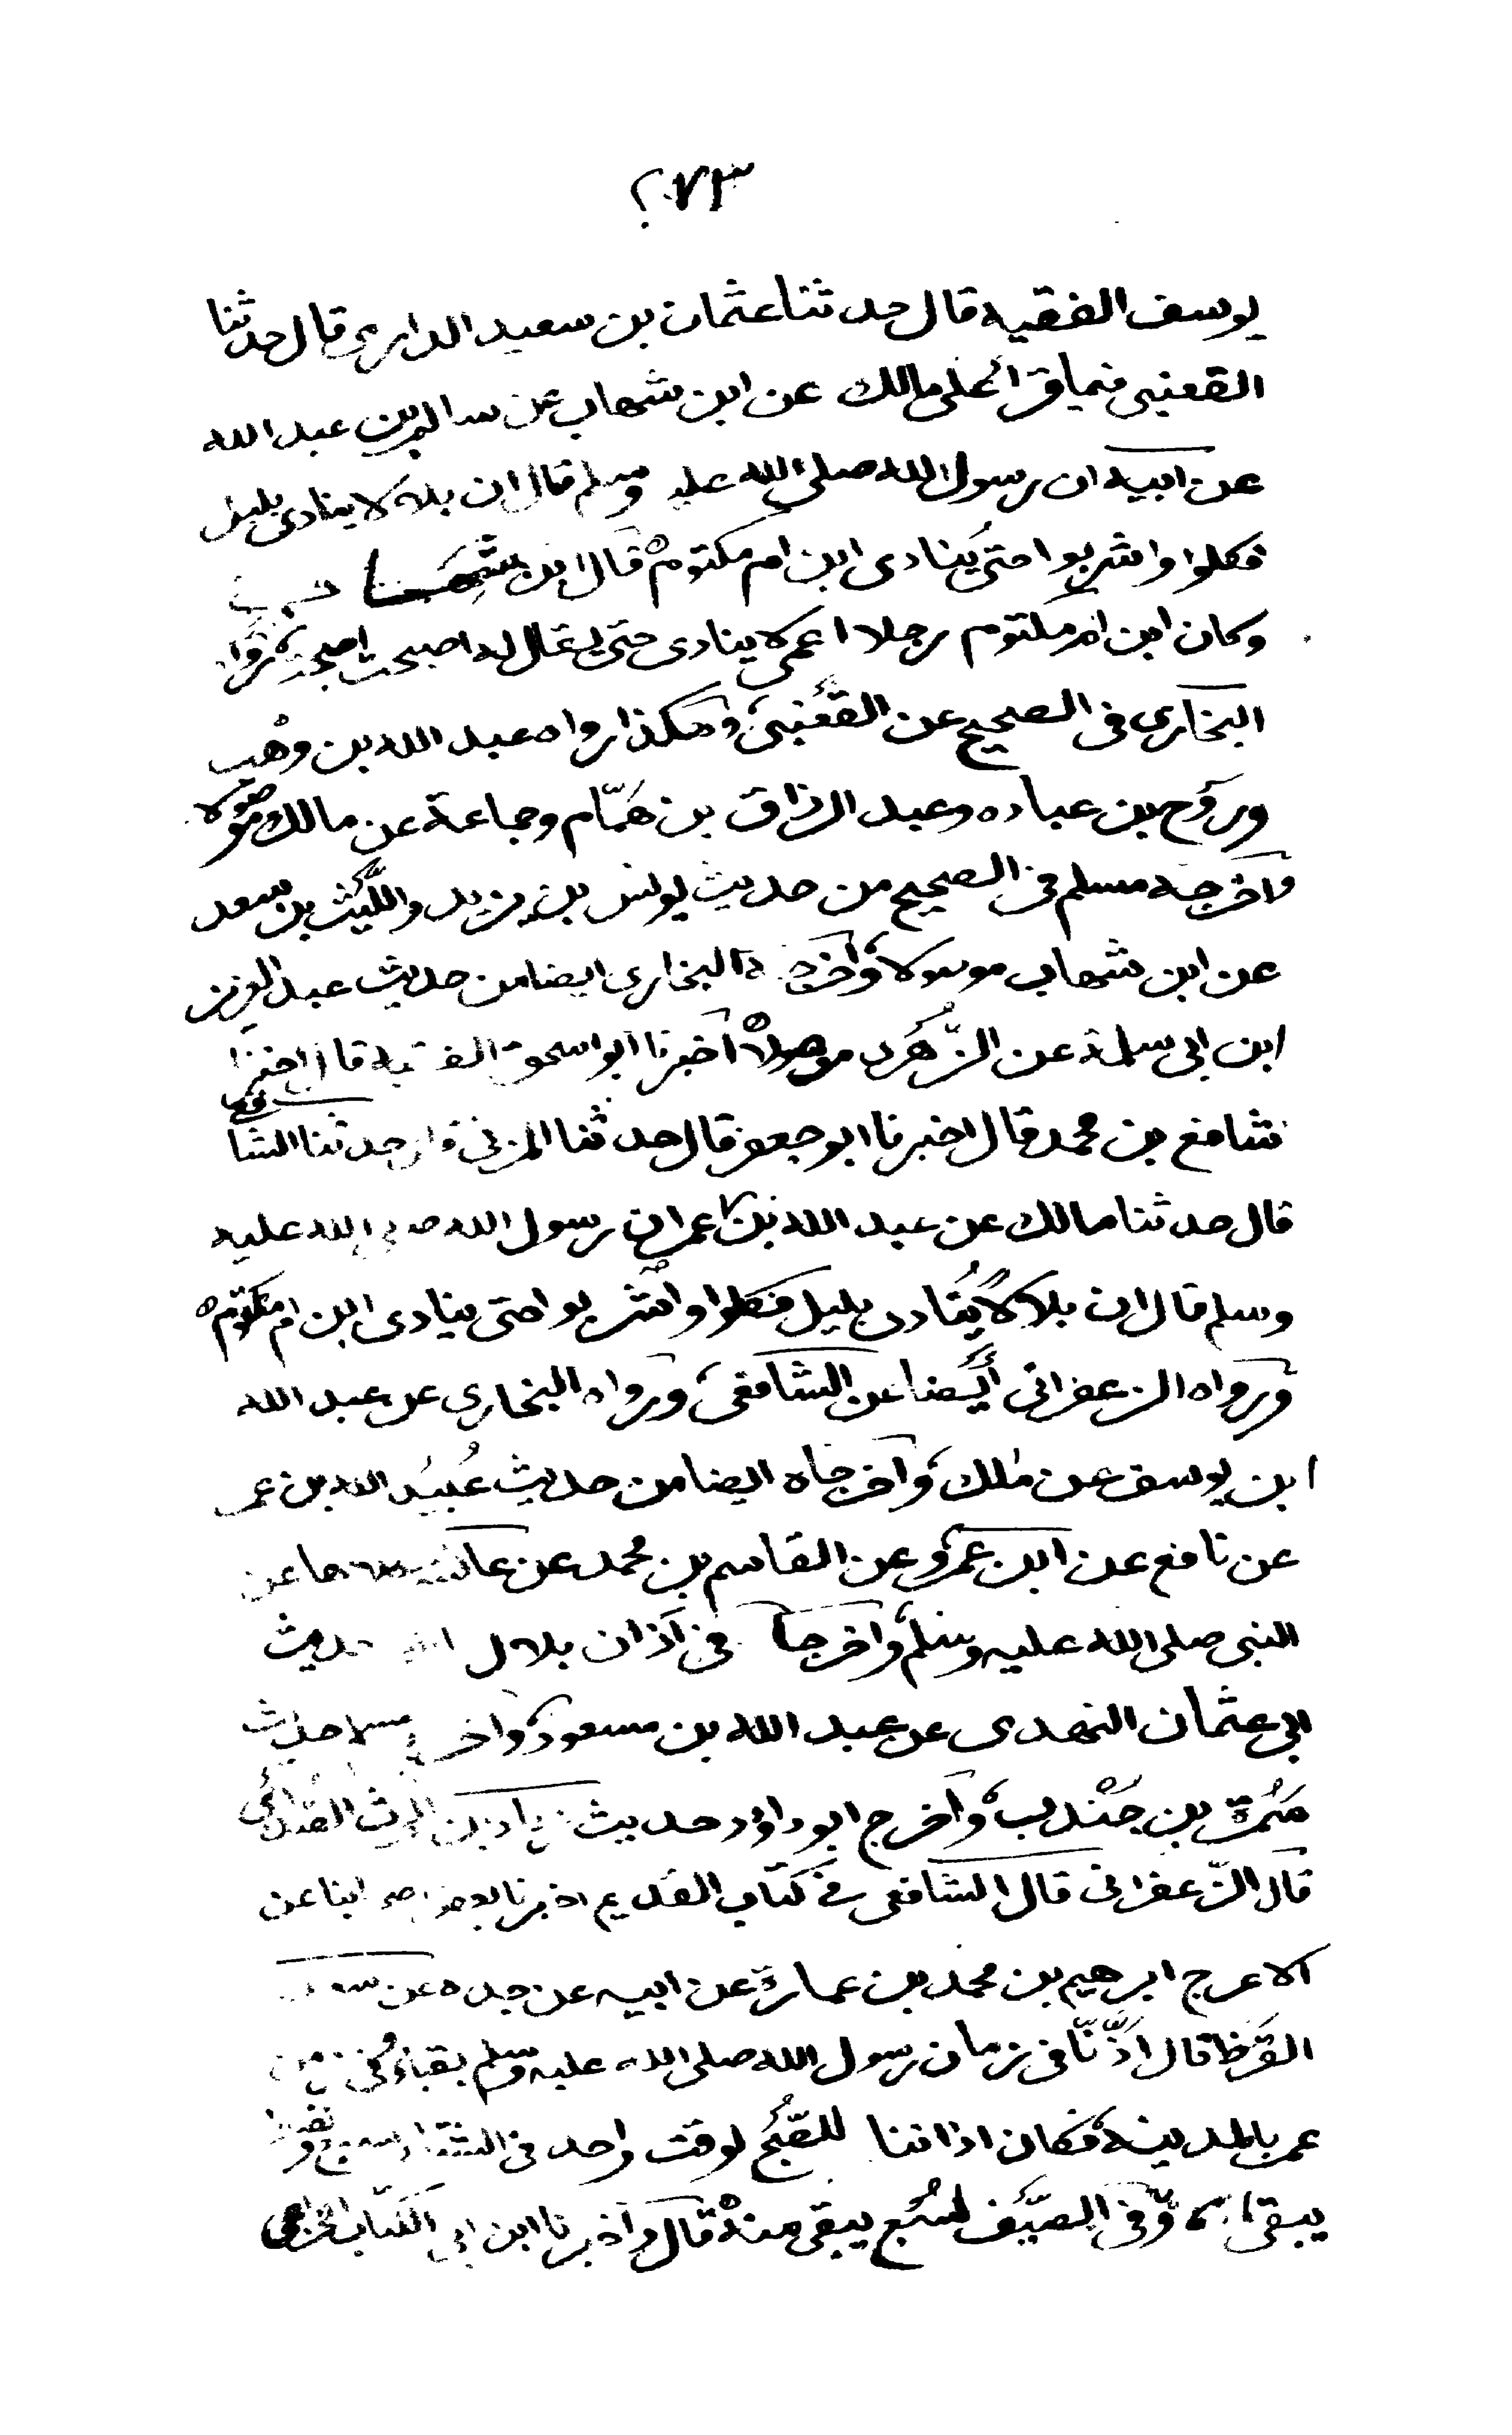 ٢٧٣
يوسف الفقيه قال حدثنا عثمان بن سعيد الدارمي قال حدثنا
القعنبى فيما قرا على مالك عن ابن شهاب عن سالم بن عبد الله
عن ابيه ان رسول الله صلى الله عليه وسلم قال ان بلالا ينادى بليل
فكلوا واشربوا حتى ينادى ابن ام مكتوم قال ابن شهاب
وكان ابن ام مكتوم رجلا اعمى لا ينادى حتى يقال له اصبحت اصبحت رواه
البخارى فى الصحيح عن القعنبى وهكذا رواه عبد الله بن وهب
وروح بن عباده وعبد الرزاق بن همّام وجماعة عن مالك موصولا
واخرجه مسلم فى الصحيح من حديث يونس بن يزيد والليث بن سعد
عن ابن شهاب موصولا واخرجه البخارى ايضا من حديث عبد العزيز
ابن ابى سلمة عن الزّهرى موصولا اخبرنا ابو اسحق الفقيه قال اخبرنا
شافع بن محمد قال اخبرنا ابو جعفر قال حدثنا المزنى قال حدثنا الشافعى
قال حدثنا مالك عن عبد الله بن عمر ان رسول الله صلى الله عليه
وسلم قال ان بلالا يُنادى بليل فكلوا واشربوا حتى ينادى ابن ام مكتوم
ورواه الزعفرانى أيضا عن الشافعى ورواه البخارى عن عبد الله
ابن يوسف عن ملك واخرجاه ايضا من حديث عُبيد الله بن عمر
عن نافع عن ابن عمر وعن القاسم بن محمد عن عائشة عن
النبى صلى الله عليه وسلم واخرجا فى اذان بلال حديث
ابى عثمان النهدى عن عبد الله بن مسعود واخرج مسلم حديث
سمرة بن جندب واخرج ابو داؤد حديث زياد بن الحرث الصدائى
قال الزّعفرانى قال الشافعى فى كتاب القديم اخبرنا بعض اصحابنا عن
الاعرج ابرهيم بن محمد بن عمارة عن ابيه عن جده عن سعد
القرظ قال اذّنّا فى زمان رسول الله صلى الله عليه وسلم بقباء وفى زمن
عمر بالمدينة فكان اذاننا للصّبح لوقت واحد فى الشتاء لسبع ونصف
يبقى وفى الصّيف لسُبع يبقى منه قال واخبرنا ابن ابى الكتاب الخزاعى